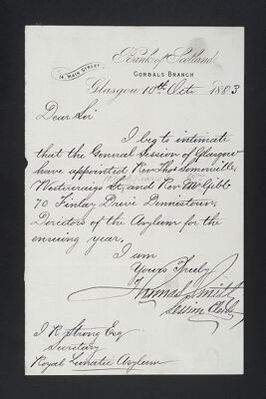 14, MAIN STREET
Bank of Scotland
GORBALS BRANCH
Glasgow 10th Octr 1883
Dear Sir
I beg to intimate
that the General Session of Glasgow
have appointed Revs Thos Somerville,
Westercraigs St, and Rev Mr Gibb
70 Finlay Drive Dennistoun,
Directors of the Asylum for the
ensuing year.
I am
Yours Truly
Thomas Smith
Session Clerk
J R Strong Esq
Secretary
Royal Lunatic Asylum